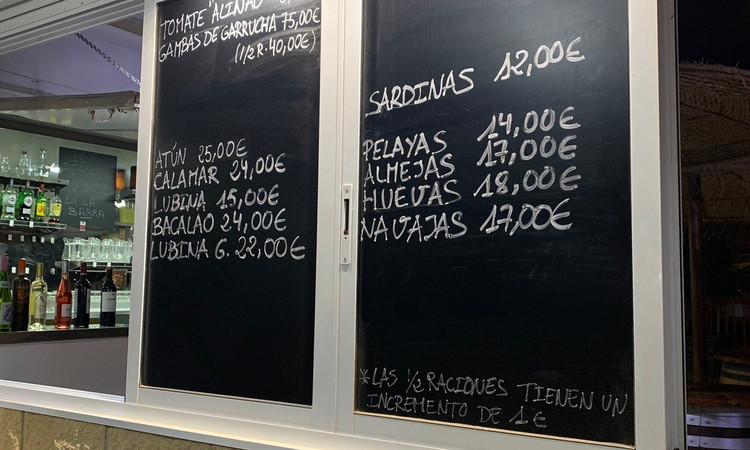 TOMATE "ALIÑAO"
GAMBAS DE GARRUCHA 75,00€
(1/2 R. 40,00€)
ATÚN 25,00€
CALAMAR 24,00€
LUBINA 15,00€
BACALAO 24,00€
LUBINA G. 22,00€
SARDINAS 12,00€
PELAYAS 14,00€
ALMEJAS 17,00€
HUEVAS 18,00€
NAVAJAS 17,00€
*LAS 1/2 RACIONES TIENEN UN
INCREMENTO DE 1€
EN LA
BARRA